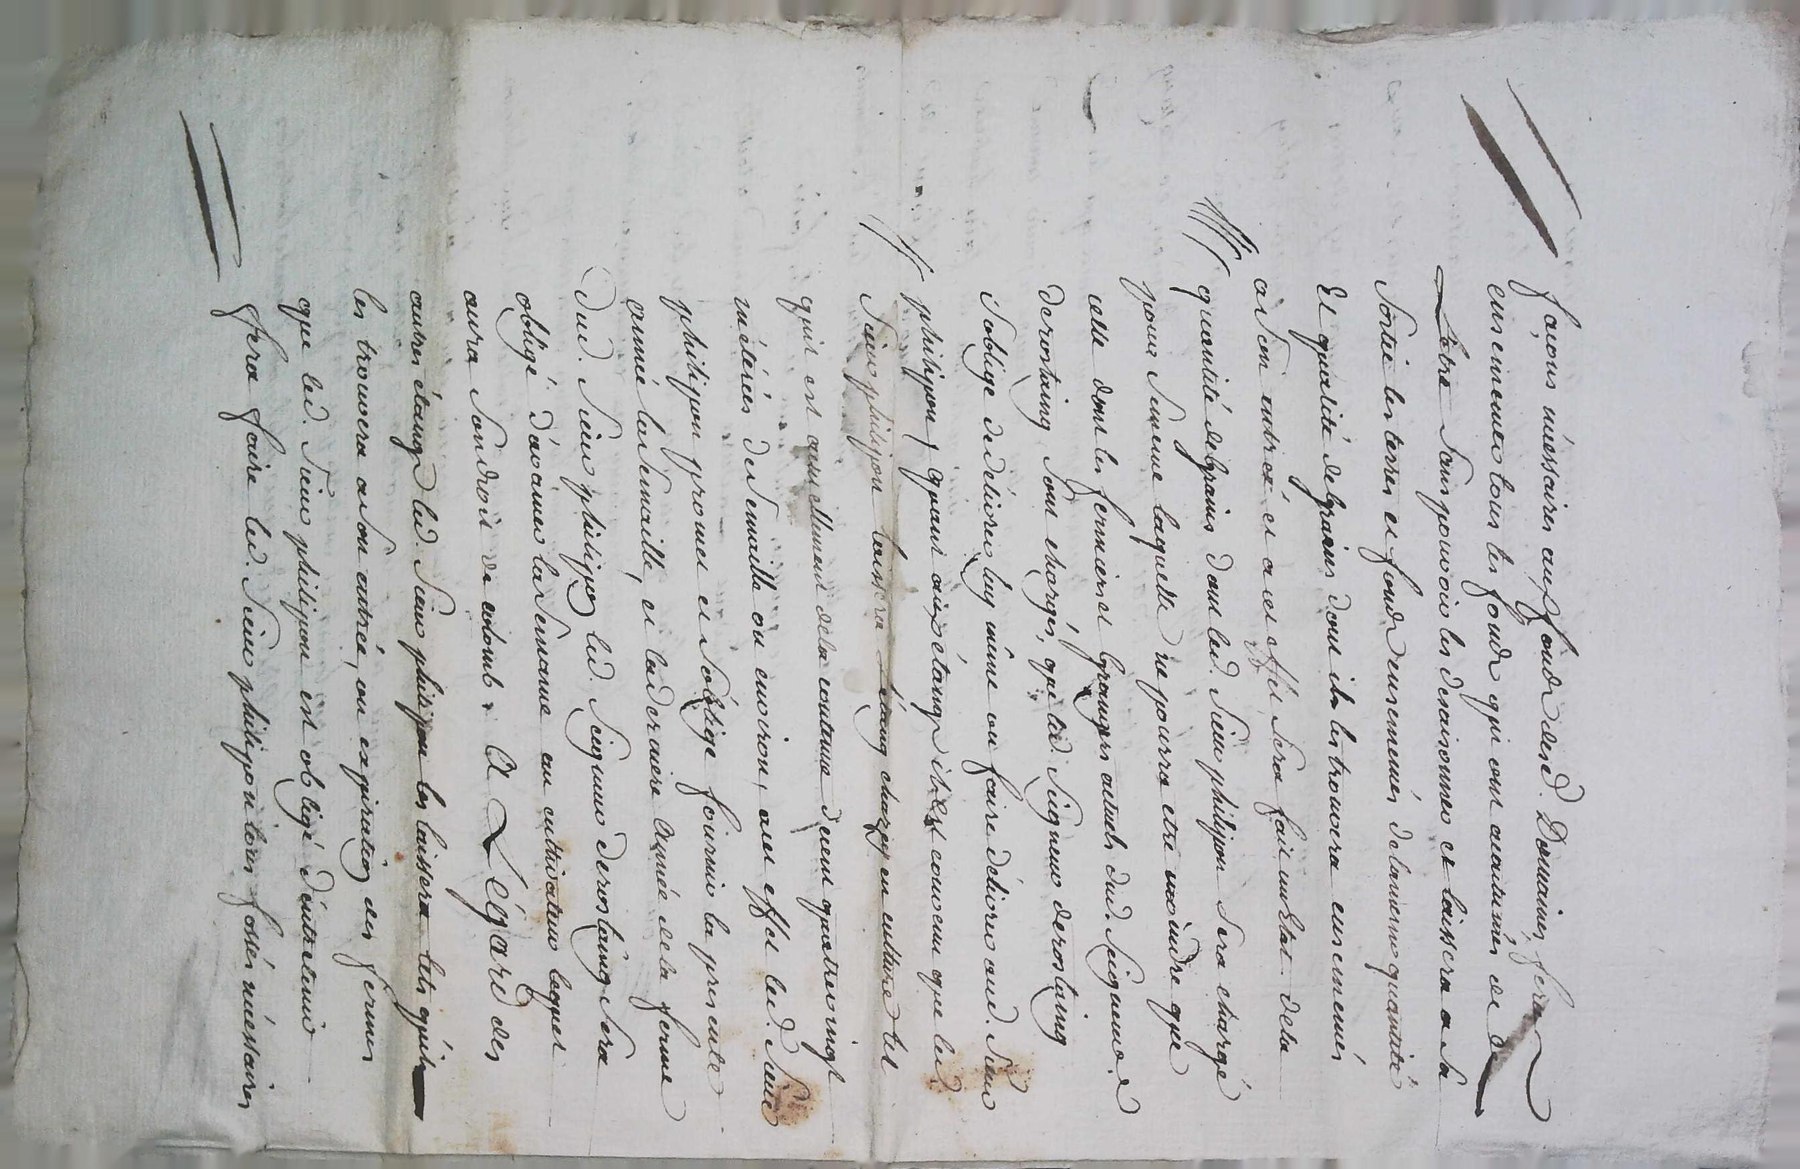 façons nécessaires aux fonds desd. Domaines, fera
ensemencer tous les fonds qui ont acoutumés de
L'être sans pouvoir les desaisonner et laissera a sa
sortie les terres et fonds ensemencés de la meme quantité
Et qualité de grains dont il les trouvera ensemencés
a son entrée et a cet effet sera fait un Etat de la
quantité de grains dont led. Sieur philipon sera chargé
pour semence laquelle ne pourra etre moindre que
celle dont les fermiers et grangers actuels dud. Seigneur de
derostaing sont chargés, que led. Seigneur derostaing
s'oblige de délivrer luy même ou faire délivrer aud. Sieur
philipon, quant aux étangs il est convenu que led.
Sieur philipon laissera L'étang en culture tel
qu'il est actuellement de la contenue de cent quatre vingt
métérées de semaille ou environ, a cet effet led. Sieur
philipon promet et s'oblige fournir la presente
année la semaille, et la derniere année de la ferme
dud. Sieur philipon led. Seigneur derostaing sera
obligé d'avancer la semence au cultivateur lequel
aura son droit de colomb. A L'égard des
autres étangs led. Sieur philipon les laissera tels qu'il
les trouvera a son entrée, en expiration des fermes
que led. Sieur philipon est obligé d'entretenir
fera faire led. Sieur philipon tous fossés nécessaires